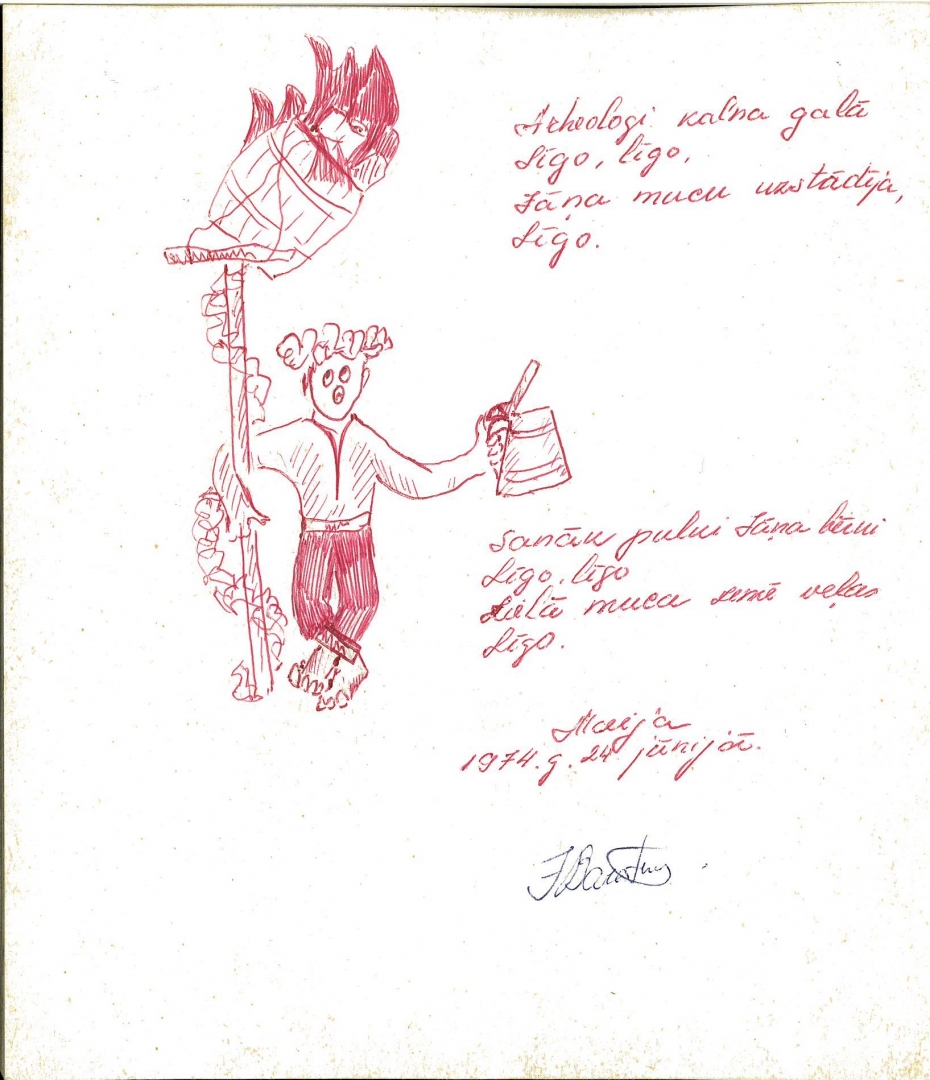 Arheologi kalna galā
Līgo, līgo,
Jāņa mucu uzstādīja,
Līgo.
Sanāk pulki Jāņa bērni
Līgo, līgo
Lielā muca zemē veļas
Līgo.
Marija
1974. g. 24 jūnijā.